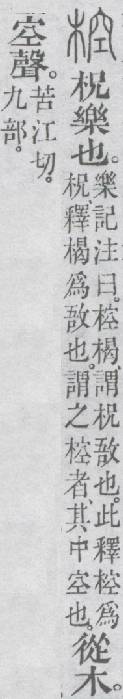 椌柷樂也。
樂記注曰。椌楬、謂柷敔也。此釋椌爲
柷、釋楬爲敔也。謂之椌者、其中空也。
從木。
空聲。
苦江切。
九部。